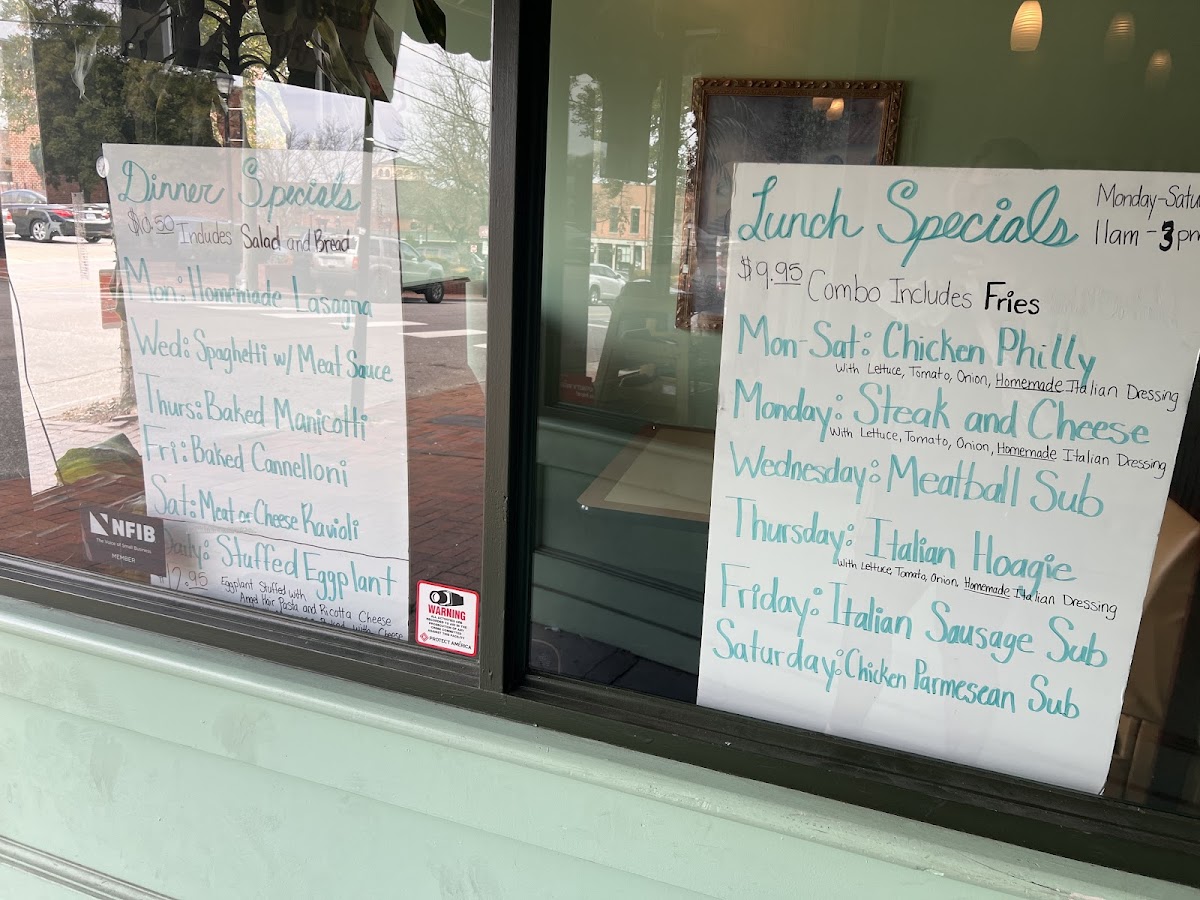 Dinner Specials
Includes Salad and Bread
Mon: Homemade Lasagna
Wed: Spaghetti w/ Meat Sauce
Thurs: Baked Manicotti
Fri: Baked Cannelloni
Sat: Meat or Cheese Ravioli
Daily: Stuffed Eggplant
$12.95 Eggplant Stuffed with
Angel Hair Pasta and Ricotta Cheese
Baked With Cheese
NFIB
The Voice of Small Business
MEMBER
WARNING
PROTECT AMERICA
Lunch Specials
Monday-Satu
11am-3pm
$9.95 Combo Includes Fries
Mon-Sat: Chicken Philly
With Lettuce, Tomato, Onion, Homemade Italian Dressing
Monday: Steak and Cheese
With Lettuce, Tomato, Onion, Homemade Italian Dressing
Wednesday: Meatball Sub
Thursday: Italian Hoagie
With Lettuce, Tomato, Onion, Homemade Italian Dressing
Friday: Italian Sausage Sub
Saturday: Chicken Parmesean Sub